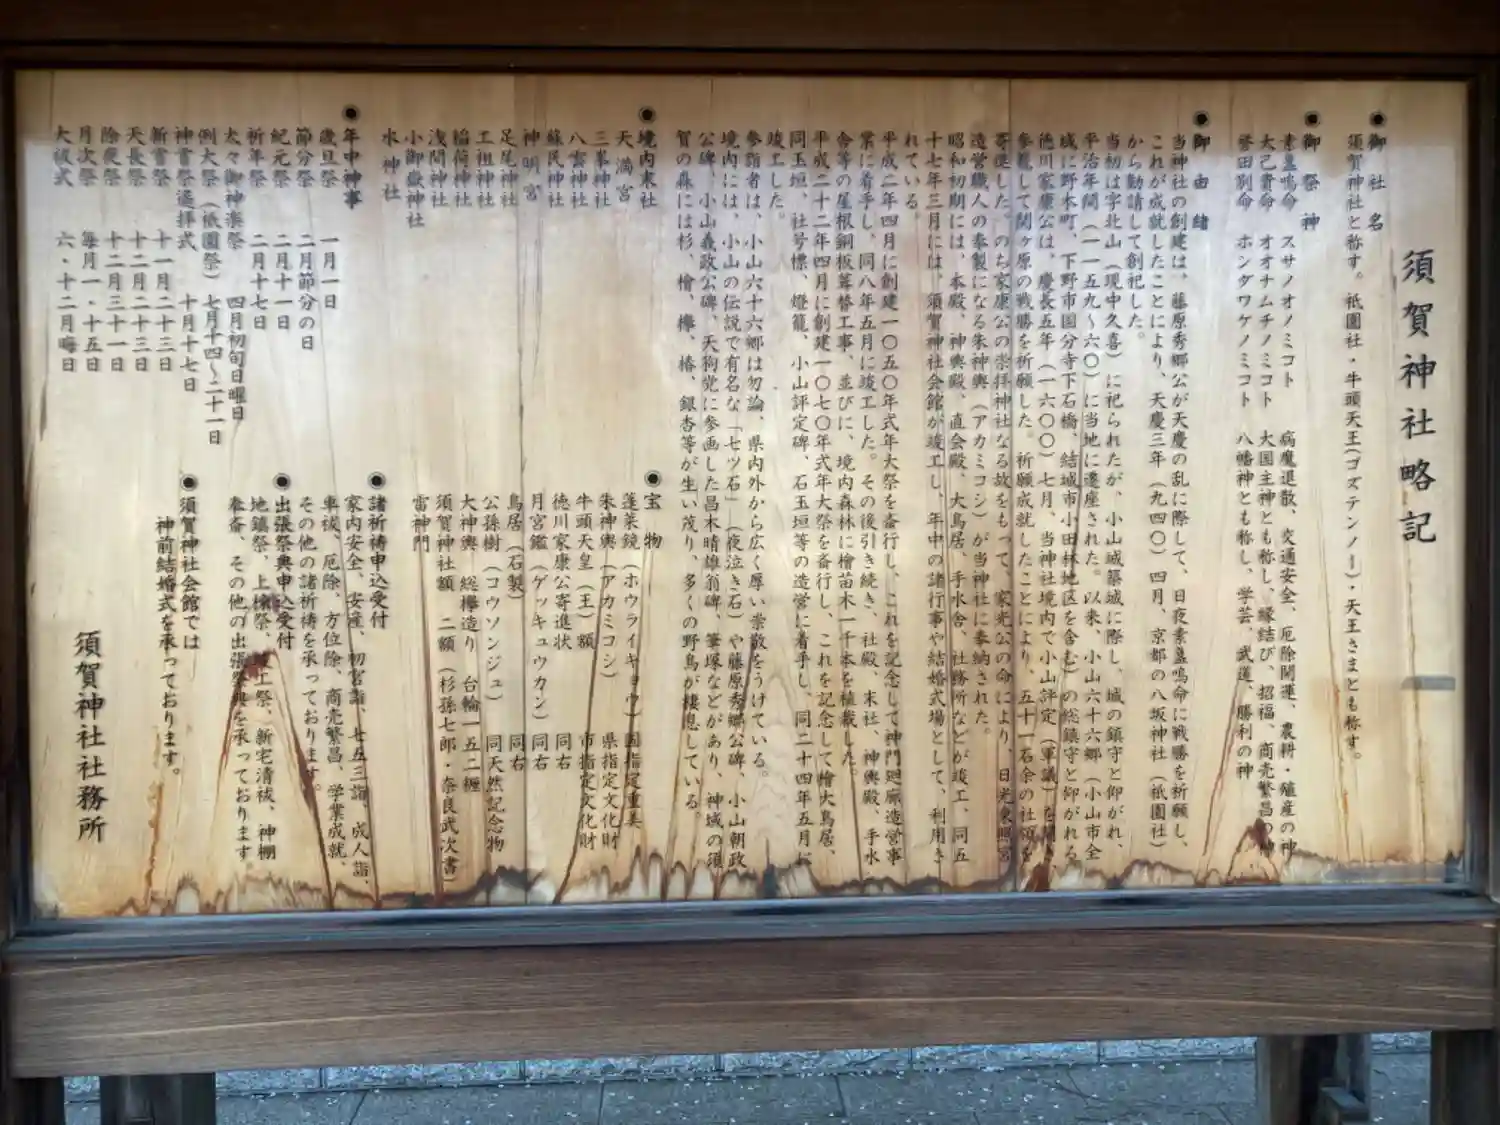 須賀神社略記
◉御社名
須賀神社と称す。祇園社・牛頭天王(ゴズテンノー)・天王さまとも称す。
◉御祭神
素盞嗚命 スサノオノミコト 病魔退散、交通安全、厄除開運、農耕・殖産の神
大己貴命 オオナムチノミコト 大国主神とも称し、縁結び、招福、商売繁昌の神
誉田別命 ホンダワケノミコト 八幡神とも称し、学芸、武運、勝利の神
◉御由緒
当神社の創建は、藤原秀郷公が天慶の乱に際して、日夜素盞嗚命に戦勝を祈願し、
これが成就したことにより、天慶三年(九四〇)四月、京都の八坂神社(祇園社)
から勧請して創祀した。
当初は字北山(現中久喜)に祀られたが、小山城築城に際し、城の鎮守と仰がれ、
平治年間(一一五九〜六〇)に当地に遷座された。以来、小山六十六郷(小山市全
域に野木町、下野市国分寺下石橋、結城市小田林地区を含む)の総鎮守と仰がれる
徳川家康公は、慶長五年(一六〇〇)七月、当神社境内で小山評定(軍議)を開き
参籠して関ヶ原の戦勝を祈願した。祈願成就したことにより、五十一石余の社領を
寄進した。のち家康公の崇拝神社なる故をもって、家光公の命により、日光東照宮
造営職人の奉製になる朱神輿(アカミコシ)が当神社に奉納された。
昭和初期には、本殿、神輿殿、直会殿、大鳥居、手水舎、社務所などが竣工、同五
十七年三月には、須賀神社会館が竣工し、年中の諸行事や結婚式場として、利用さ
れている。
平成二年四月に創建一〇五〇年式年大祭を斎行し、これを記念して神門廻廊造営事
業に着手し、同八年五月に竣工した。その後引き続き、社殿、末社、神輿殿、手水
舎等の屋根銅板葺替工事、並びに、境内森林に檜苗木一千本を植栽した。
平成二十二年四月に創建一〇七〇年式年大祭を斎行し、これを記念して檜大鳥居、
同玉垣、社号標、燈籠、小山評定碑、石玉垣等の造営に着手し、同二十四年五月に
竣工した。
参詣者は、小山六十六郷は勿論、県内外から広く厚い崇敬をうけている。
境内には、小山の伝説で有名な「七ツ石」(夜泣き石)や藤原秀郷公碑、小山朝政
公碑、小山義政公碑、天狗党に参画した昌木晴雄翁碑、筆塚などがあり、神域の須
賀の森には杉、檜、欅、椿、銀杏等が生い茂り、多くの野鳥が棲息している。
◉境内末社
天満宮
三峯神社
八雲神社
蘇民神社
神明宮
足尾神社
工祖神社
稲荷神社
浅間神社
小御嶽神社
水神社
◉宝物
蓬莱鏡(ホウライキョウ)国指定重美
朱神輿(アカミコシ) 県指定文化財
牛頭天皇(王)額 市指定文化財
徳川家康公寄進状 同右
月宮鑑(ゲッキュウカン) 同右
鳥居(石製) 同右
公孫樹(コウソンジュ) 同天然記念物
大神輿 総欅造り 台輪一五二糎
須賀神社額 二額(杉孫七郎・奈良武次書)
雷神門
◉年中神事
歳旦祭 一月一日
節分祭 二月節分の日
紀元祭 二月十一日
祈年祭 二月十七日
太々御神楽祭 四月初旬日曜日
例大祭(祇園祭) 七月十四〜二十一日
神嘗祭遥拝式 十月十七日
新嘗祭 十一月二十三日
天長祭 十二月二十三日
除夜祭 十二月三十一日
月次祭 毎月一・十五日
大祓式 六・十二月晦日
◉諸祈祷申込受付
家内安全、安産、初宮詣、七五三詣、成人詣、
車祓、厄除、方位除、商売繁昌、学業成就、
その他の諸祈祷を承っております。
◉出張祭典申込受付
地鎮祭、上棟祭、竣工祭、新宅清祓、神棚
奉斎、その他の出張祭典を承っております。
◉須賀神社会館では
神前結婚式を承っております。
須賀神社社務所